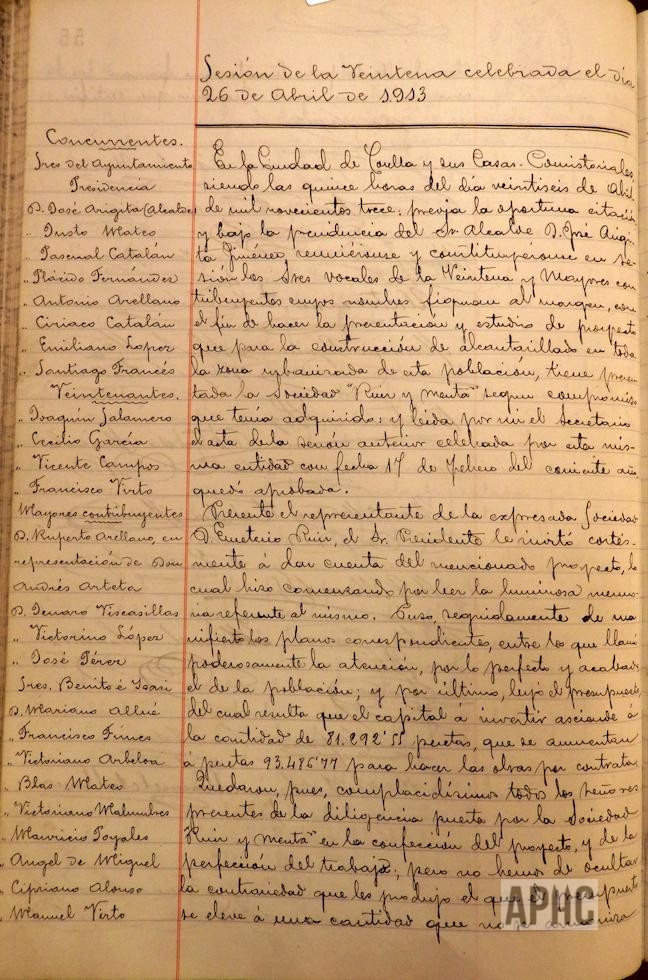 Sesión de la Veintena celebrada el día
26 de Abril de 1913
Concurrentes.
Sres del Ayuntamiento
Presidencia
D. José Arigita (Alcalde)
" Justo Mateo
" Pascual Catalán
" Plácido Fernández
" Antonio Arellano
" Ciriaco Catalán
" Emiliano Lopez
" Santiago Francés
Veintenantes.
" Joaquín Salamero
" Cecilio García
" Vicente Campos
" Francisco Virto
Mayores contribuyentes
D. Ruperto Arellano, en
representación de Don
Andrés Arteta
D. Genaro Viscasillas
" Victorino López
" José Pérez
Sres. Benito é Isasi
D. Mariano Allué
" Francisco Fimes
" Victoriano Arbeloa
" Blas Mateo
" Victoriano Malumbres
" Mauricio Poyales
" Angel de Miguel
" Cipriano Alonso
" Manuel Virto
En la Ciudad de Corella y sus Casas-Consistoriales
siendo las quince horas del día veintiseis de Abril
de mil novecientos trece: previa la oportuna citación
y bajo la presidencia del Sr. Alcalde D. José Arigi-
ta Jiménez reuniéronse y constituyéronse en se-
sión los Sres vocales de la Veintena y Mayores con
tribuyentes cuyos nombres figuran al margen, con
el fin de hacer la presentación y estudio de proyecto
que para la construcción de alcantarillado en toda
la zona urbanizada de esta población, tiene presen
tada la Sociedad "Ruiz y Mentá" segun compromiso
que tenía adquirido: y leida por mi el Secretario
el acta de la sesión anterior celebrada por esta mis-
ma entidad con fecha 17 de Febrero del corriente año
quedó aprobada.
Presente el representante de la expresada Sociedad
D. Emeterio Ruiz, el Sr. Presidente le invitó cortés-
mente á dar cuenta del mencionado proyecto, lo
cual hizo comenzando por leer la luminosa memo-
ria referente al mismo. Puso, seguidamente de ma
nifiesto los planos correspondientes, entre los que llamó
poderosamente la atención, por lo perfecto y acabado
el de la población; y por último, leyó el presupuesto,
del cual resulta que el capital á invertir asciende á
la cantidad de 81.292'55 pesetas, que se aumentan
á pesetas 93.486'77 para hacer las obras por contrata.
Quedaron, pues, complacidísimos todos los señores
presentes de la diligencia puesta por la Sociedad
"Ruiz y Mentá" en la confección del proyecto, y de la
perfección del trabajo; pero no hemos de ocultar
la contrariedad que les produjo el que el presupuesto
se eleve á una cantidad que no se
APHC